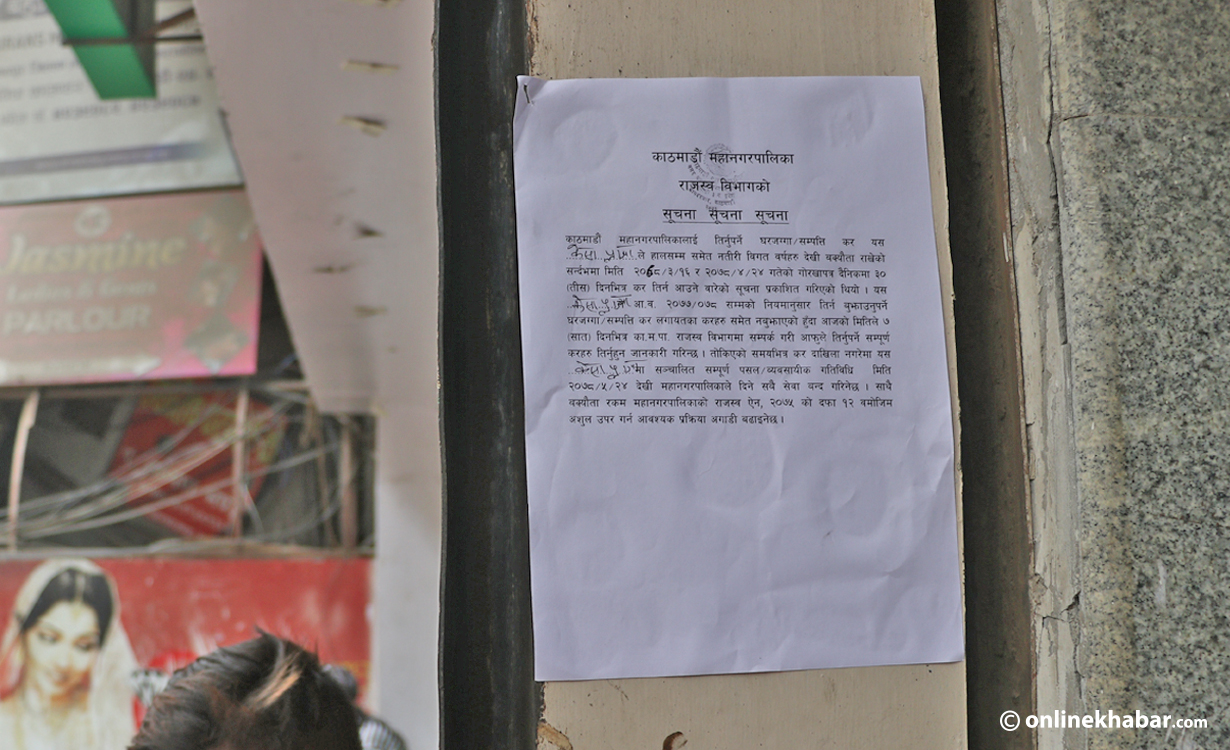 काठमाडौं महानगरपालिका
राजस्व विभागको
सूचना सूचना सूचना
काठमाडौं महानगरपालिकालाई तिर्नुपर्ने घरजग्गा/सम्पत्ति कर यस
ले हालसम्म समेत नतीरी विगत वर्षहरु देखी बक्यौता राखेको
सर्न्दभमा मिति २०६८/३/१६ र २०७८/४/२४ गतेको गोरखापत्र दैनिकमा ३०
(तीस) दिनभित्र कर तिर्न आउने बारेको सूचना प्रकाशित गरिएको थियो । यस
आ.ब. २०७७/०७८ सम्मको नियमानुसार तिर्न बुझाउनुपर्ने
घरजग्गा/सम्पत्ति कर लगायतका करहरु समेत नबुझाएको हुँदा आजको मितिले ७
(सात) दिनभित्र का.म.पा. राजस्व विभागमा सम्पर्क गरी आफुले तिर्नुपर्ने सम्पूर्ण
करहरु तिर्नुहुन जानकारी गरिन्छ । तोकिएको समयभित्र कर दाखिला नगरेमा यस
मा सञ्चालित सम्पूर्ण पसल/व्यबसायीक गतिविधि मिति
२०७८/५/२४ देखी महानगरपालिकाले दिने सबै सेवा बन्द गरिनेछ । साथै
बक्यौता रकम महानगरपालिकाको राजस्व ऐन, २०७५ को दफा १२ वमोजिम
अशुल उपर गर्न आवश्यक प्रक्रिया अगाडी बढाइनेछ ।
Jasmine
PARLOUR
© onlinekhabar.com